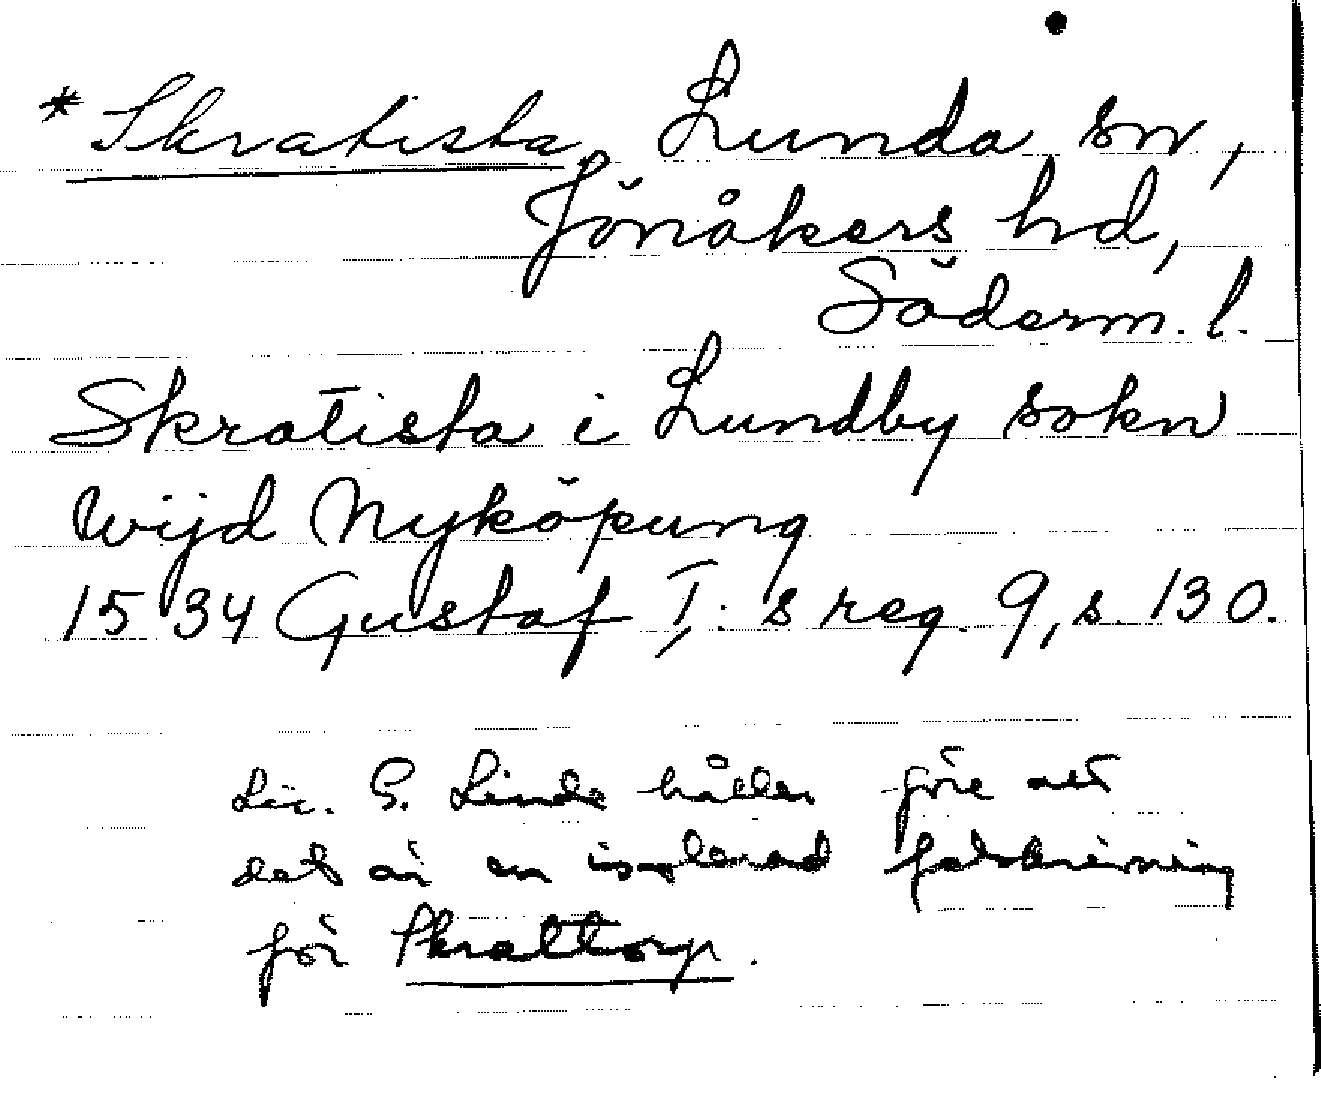 *Skratista, Lunda sn,
Jönåkers hd,
Söderm. l.
Skratista i Lundby sokn
wijd Nyköpung
1534 Gustaf I:s reg. 9, s. 130.
Lic. G. Linde håller före att
det är en isolerad felskrivning
för Skrattorp.